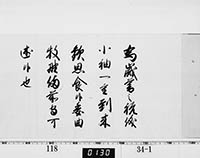 為歳暮之祝儀
小袖一重到来
歓思食候委曲
牧野備前守可
述候也
118
0130
34-1